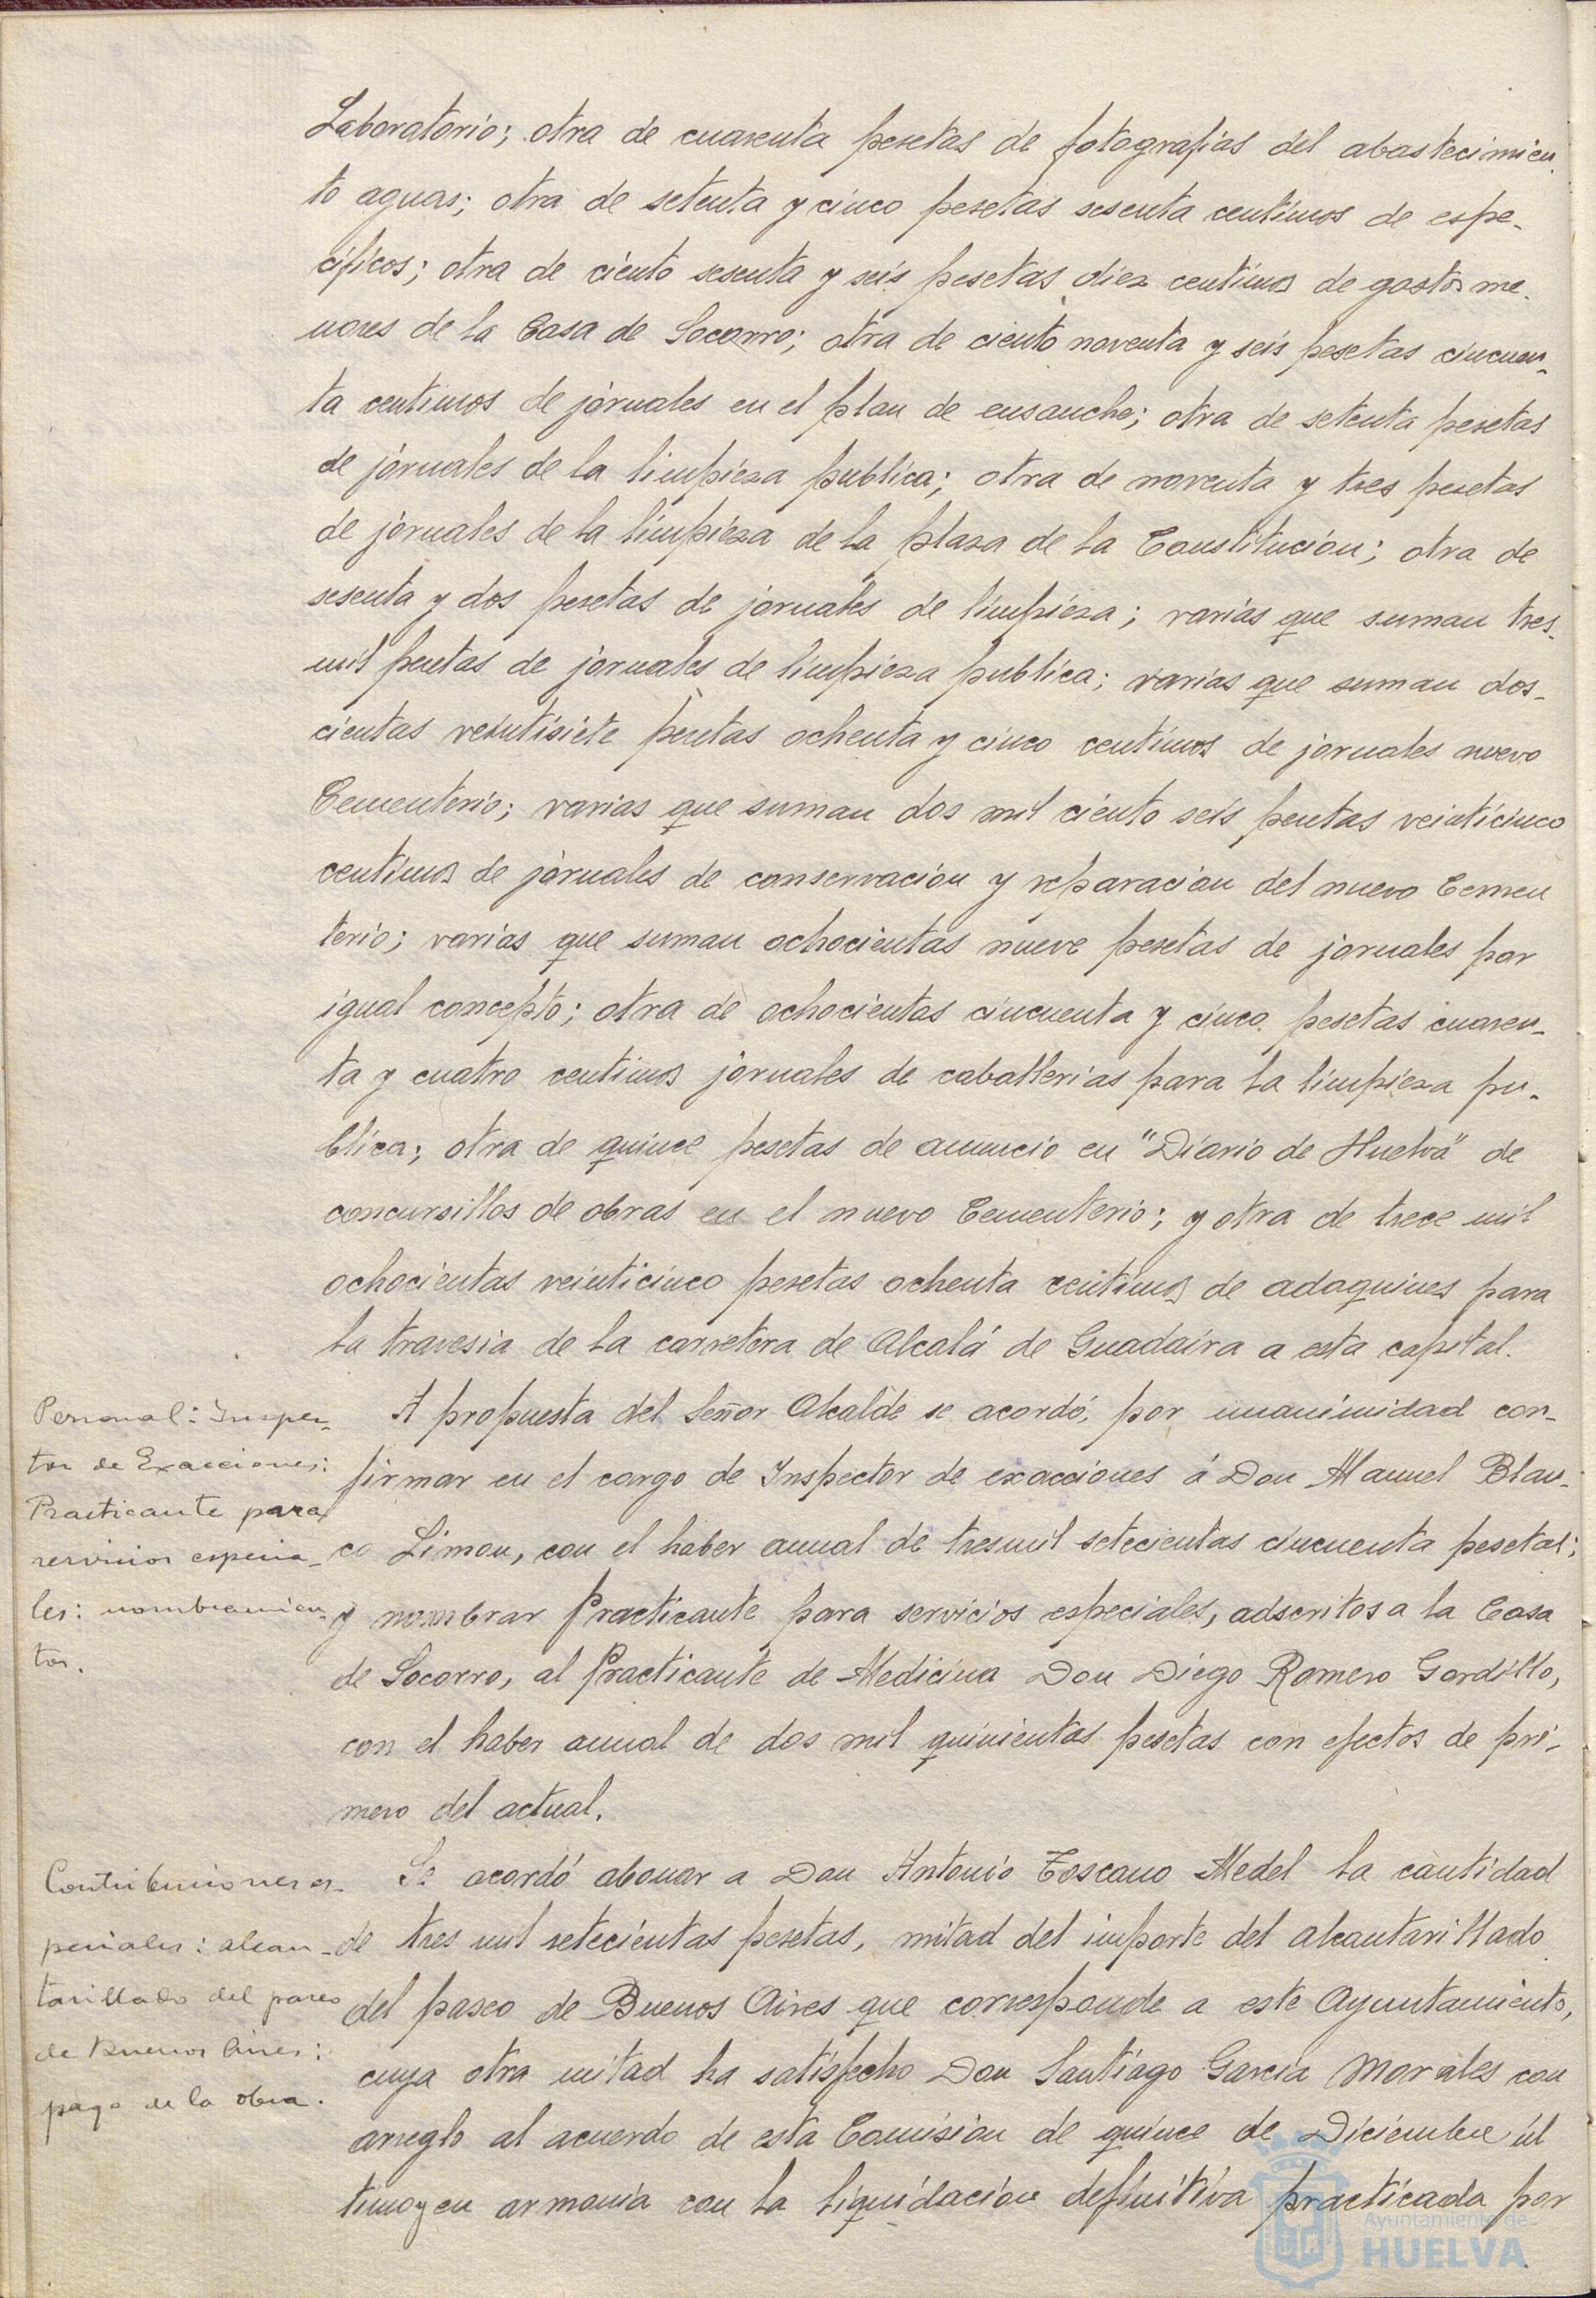 Laboratorio; otra de cuarenta pesetas de fotografias del abastecimien
to aguas; otra de setenta y cinco pesetas sesenta centimos de espe-
cificos; otra de ciento sesenta y seis pesetas diez centimos de gastos me-
nores de la Casa de Socorro; otra de ciento noventa y seis pesetas cincuen-
ta centimos de jornales en el plan de ensanche; otra de setenta pesetas
de jornales de la limpieza publica; otra de noventa y tres pesetas
de jornales de la limpieza de la plaza de la Constitución; otra de
sesenta y dos pesetas de jornales de limpieza; varias que suman tres-
mil pesetas de jornales de limpieza publica; varias que suman dos-
cientas veintisiete pesetas ochenta y cinco centimos de jornales nuevo
Cementerio; varias que suman dos mil ciento seis pesetas veinticinco
centimos de jornales de conservación y reparacion del nuevo Cemen
terio; varias que suman ochocientas nueve pesetas de jornales por
igual concepto; otra de ochocientas cincuenta y cinco pesetas cuaren-
ta y cuatro centimos jornales de caballerias para la limpieza pu-
blica; otra de quince pesetas de anuncio en "Diario de Huelva" de
concursillos de obras en el nuevo Cementerio; y otra de trece mil
ochocientas veinticinco pesetas ochenta centimos de adoquines para
la travesia de la carretera de Alcalá de Guadaira a esta capital.
Personal: Inspec-
tor de Exacciones:
Practicante para
servicios especia-
les: nombramien-
tos.
A propuesta del Señor Alcalde se acordó, por unanimidad con-
firmar en el cargo de Inspector de exacciones á Don Manuel Blan-
co Limon, con el haber anual de tresmil setecientas cincuenta pesetas;
y nombrar Practicante para servicios especiales, adscritos a la Casa
de Socorro, al Practicante de Medicina Don Diego Romero Gordillo,
con el haber anual de dos mil quinientas pesetas con efectos de pri-
mero del actual.
Contribuciones es-
peciales: alcan-
tarillado del paseo
de Buenos Aires:
pago de la obra.
Se acordó abonar a Don Antonio Toscano Medel la cantidad
de tres mil setecientas pesetas, mitad del importe del alcantarillado
del paseo de Buenos Aires que corresponde a este Ayuntamiento,
cuya otra mitad ha satisfecho Don Santiago García Morales con
arreglo al acuerdo de esta Comisión de quince de Diciembre úl
timo y en armonia con la liquidación definitiva practicada por
Ayuntamiento de
HUELVA